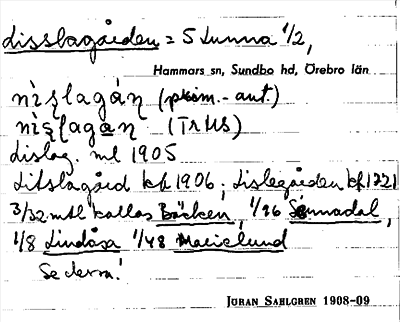 Lisslagården = S Lunna 1/2,
Hammars sn, Sundbo hd, Örebro län
nìslagán (prim.-aut.)
nìslagan (TrUS)
Lislag. ml 1905
Litslagård kf 1906; Lislegården kf 1721
3/32 mtl kallas Bäcken, 1/96 Sännadal,
1/8 Lindåsa 1/48 Marielund
Se dessa!
JÖRAN SAHLGREN 1908-09